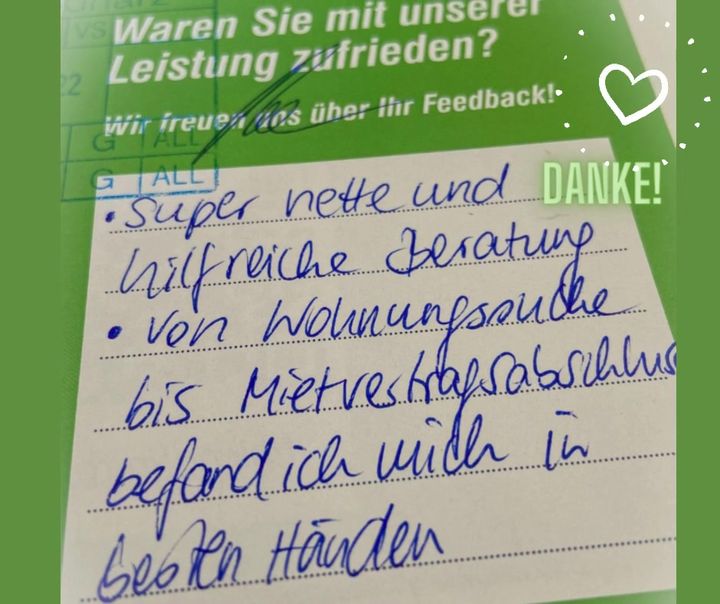 Waren Sie mit unserer
Leistung zufrieden?
Wir freuen uns über Ihr Feedback!
G ALL
G ALL
DANKE!
• Super nette und
hilfreiche Beratung
• von Wohnungssuche
bis Mietvertragsabschlus
befand ich mich in
besten Händen